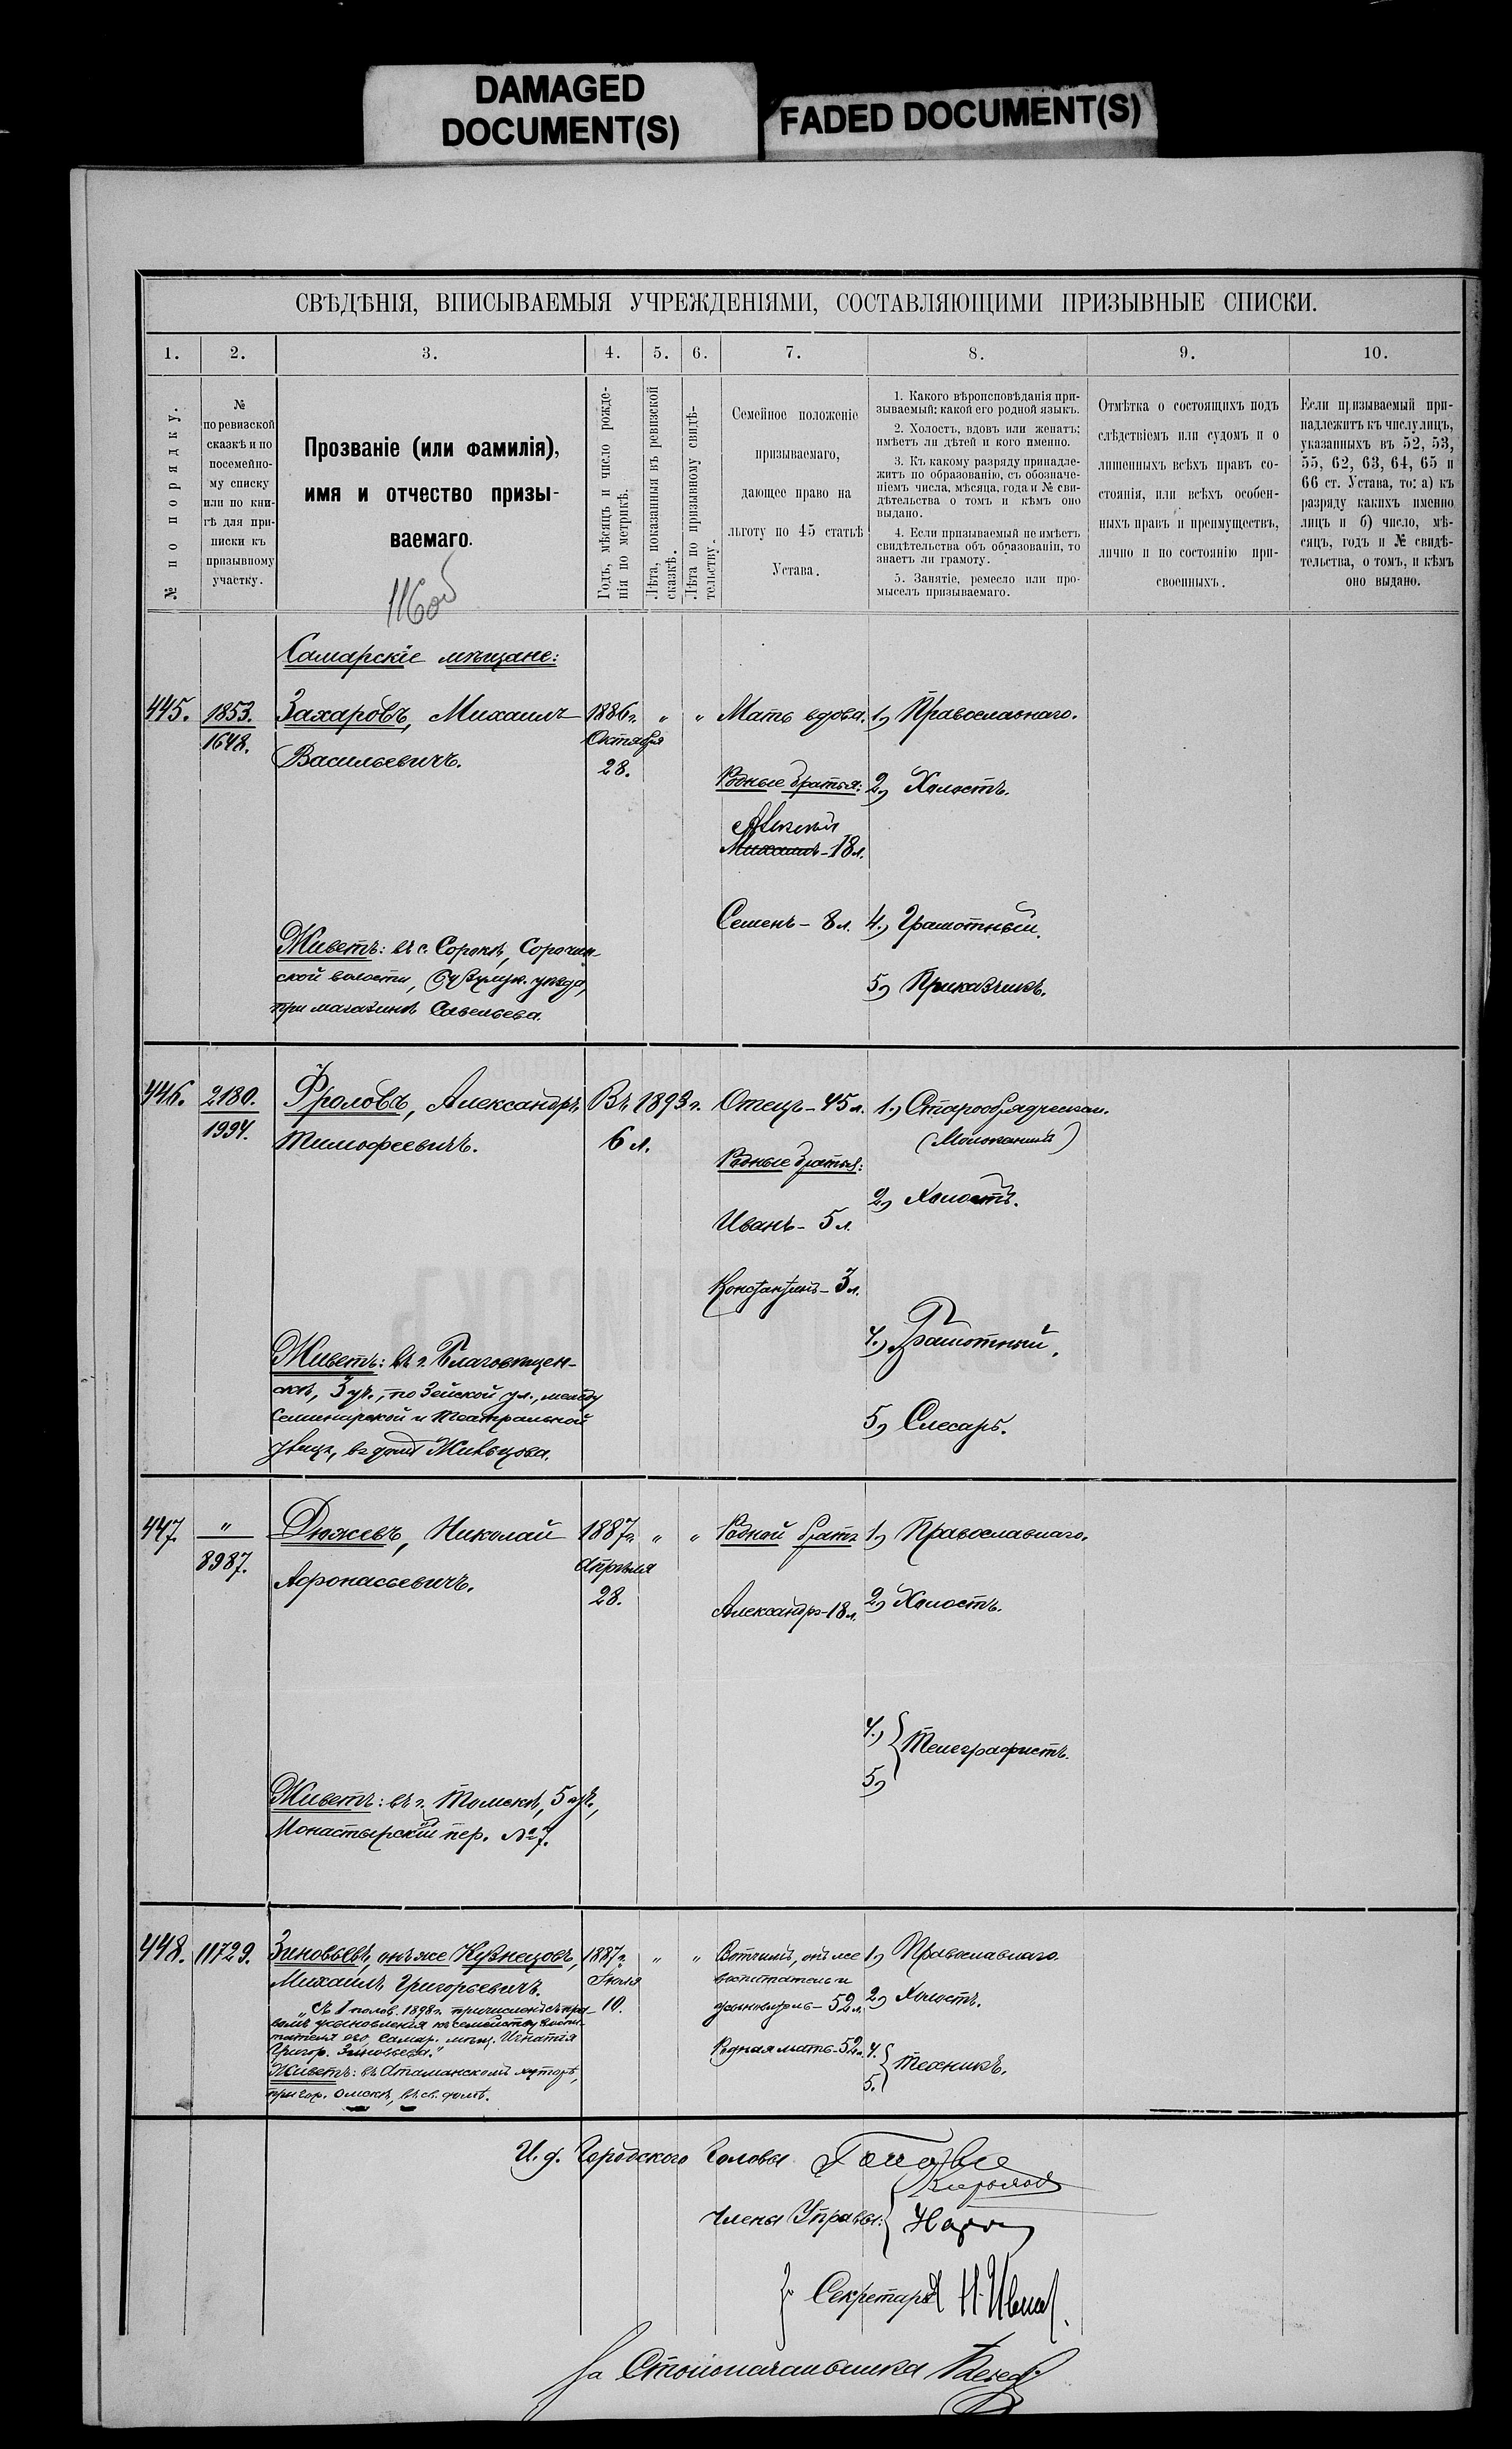 DAMAGED
DOCUMENT(S)
FADED DOCUMENT(S)
СВѢДѢНІЯ, ВПИСЫВАЕМЫЯ УЧРЕЖДЕНІЯМИ, СОСТАВЛЯЮЩИМИ ПРИЗЫВНЫЕ СПИСКИ.
1. 2. 3. 4. 5. 6. 7. 8. 9. 10.
№ по порядку.
№
по ревизской
сказкѣ и по
посемейно-
му списку
или по кни-
гѣ для при-
писки къ
призывному
участку.
Прозваніе (или фамилія),
имя и отчество призы-
ваемаго.
116об
Годъ, мѣсяцъ и число рожде-
нія по метрикѣ.
Лѣта, показанныя въ ревизской
сказкѣ.
Лѣта по призывному свидѣ-
тельству.
Семейное положеніе
призываемаго,
дающее право на
льготу по 45 статьѣ
Устава.
1. Какого вѣроисповѣданія при-
зываемый; какой его родной языкъ.
2. Холостъ, вдовъ или женатъ;
имѣетъ ли дѣтей и кого именно.
3. Къ какому разряду принадле-
житъ по образованію, съ обозначе-
ніемъ числа, мѣсяца, года и № сви-
дѣтельства о томъ и кѣмъ оно
выдано.
4. Если призываемый не имѣетъ
свидѣтельства объ образованіи, то
знаетъ ли грамоту.
5. Занятіе, ремесло или про-
мыселъ призываемаго.
Отмѣтка о состоящихъ подъ
слѣдствіемъ или судомъ и о
лишенныхъ всѣхъ правъ со-
стоянія, или всѣхъ особен-
ныхъ правъ и преимуществъ,
лично и по состоянію при-
своенныхъ.
Если призываемый при-
надлежитъ къ числу лицъ,
указанныхъ въ 52, 53,
55, 62, 63, 64, 65 и
66 ст. Устава, то: а) къ
разряду какихъ именно
лицъ и б) число, мѣ-
сяцъ, годъ и № свидѣ-
тельства, о томъ, и кѣмъ
оно выдано.
Самарскіе мѣщане:
445. 1853. Захаровъ, Михаилъ 1886 г. " " Мать вдова. 1) Православнаго.
1648. Васильевичъ. Октября
28.
Родные братья: 2) Холостъ.
Алексѣй
Михаилъ - 18 л.
Семенъ - 8 л. 4.) Грамотный.
Живетъ: въ с. Сорокѣ, Сорочин-
ской волости, Бузулук. уѣзда, 5) Приказчикъ.
при магазинѣ Савельева.
446. 2180. Фроловъ, Александръ Въ 1893 г. Отецъ - 45 л. 1.) Старообрядческаго.
1994. Тимофеевичъ. 6 л. (Молоканинъ)
Родные братья:
2) Холостъ.
Иванъ - 5 л.
Константинъ - 3 л.
4.) Грамотный.
Живетъ: въ г. Благовѣщен-
скѣ, 3 уч., по Зейской ул., между
Семинарской и Театральной 5) Слесарь.
улицъ, въ домѣ
447. " Дюжевъ, Николай 1887 г. " " Родной братъ 1) Православнаго.
8987. Афонасьевичъ. Апрѣля
28. Александръ - 18 л. 2) Холостъ.
4.) Телеграфистъ.
5)
Живетъ: въ г. Томскѣ, 5 уч.,
Монастырскій пер. № 7.
448. 11729. Зиновьевъ, онъ же Кузнецовъ, 1887 г. " " Вотчимъ, онъ же 1) Православнаго.
Михаилъ Григорьевичъ. Іюля воспитатель и
"Съ 1 полов. 1898 г. причисленъ съ пра- 10. усыновитель - 52 л. 2) Холостъ.
вомъ усыновленія къ семейству воспи-
тателя его, Самар. мѣщ. Игнатія Родная мать - 52 л. 4. Техникъ.
Григор. Зиновьева." 5.
Живетъ: въ Атаманскомъ хуторѣ,
при гор. Омскѣ, въ св. домѣ.
И. д. Городского Головы
Члены Управы:
Секретаря
За Столоначальника